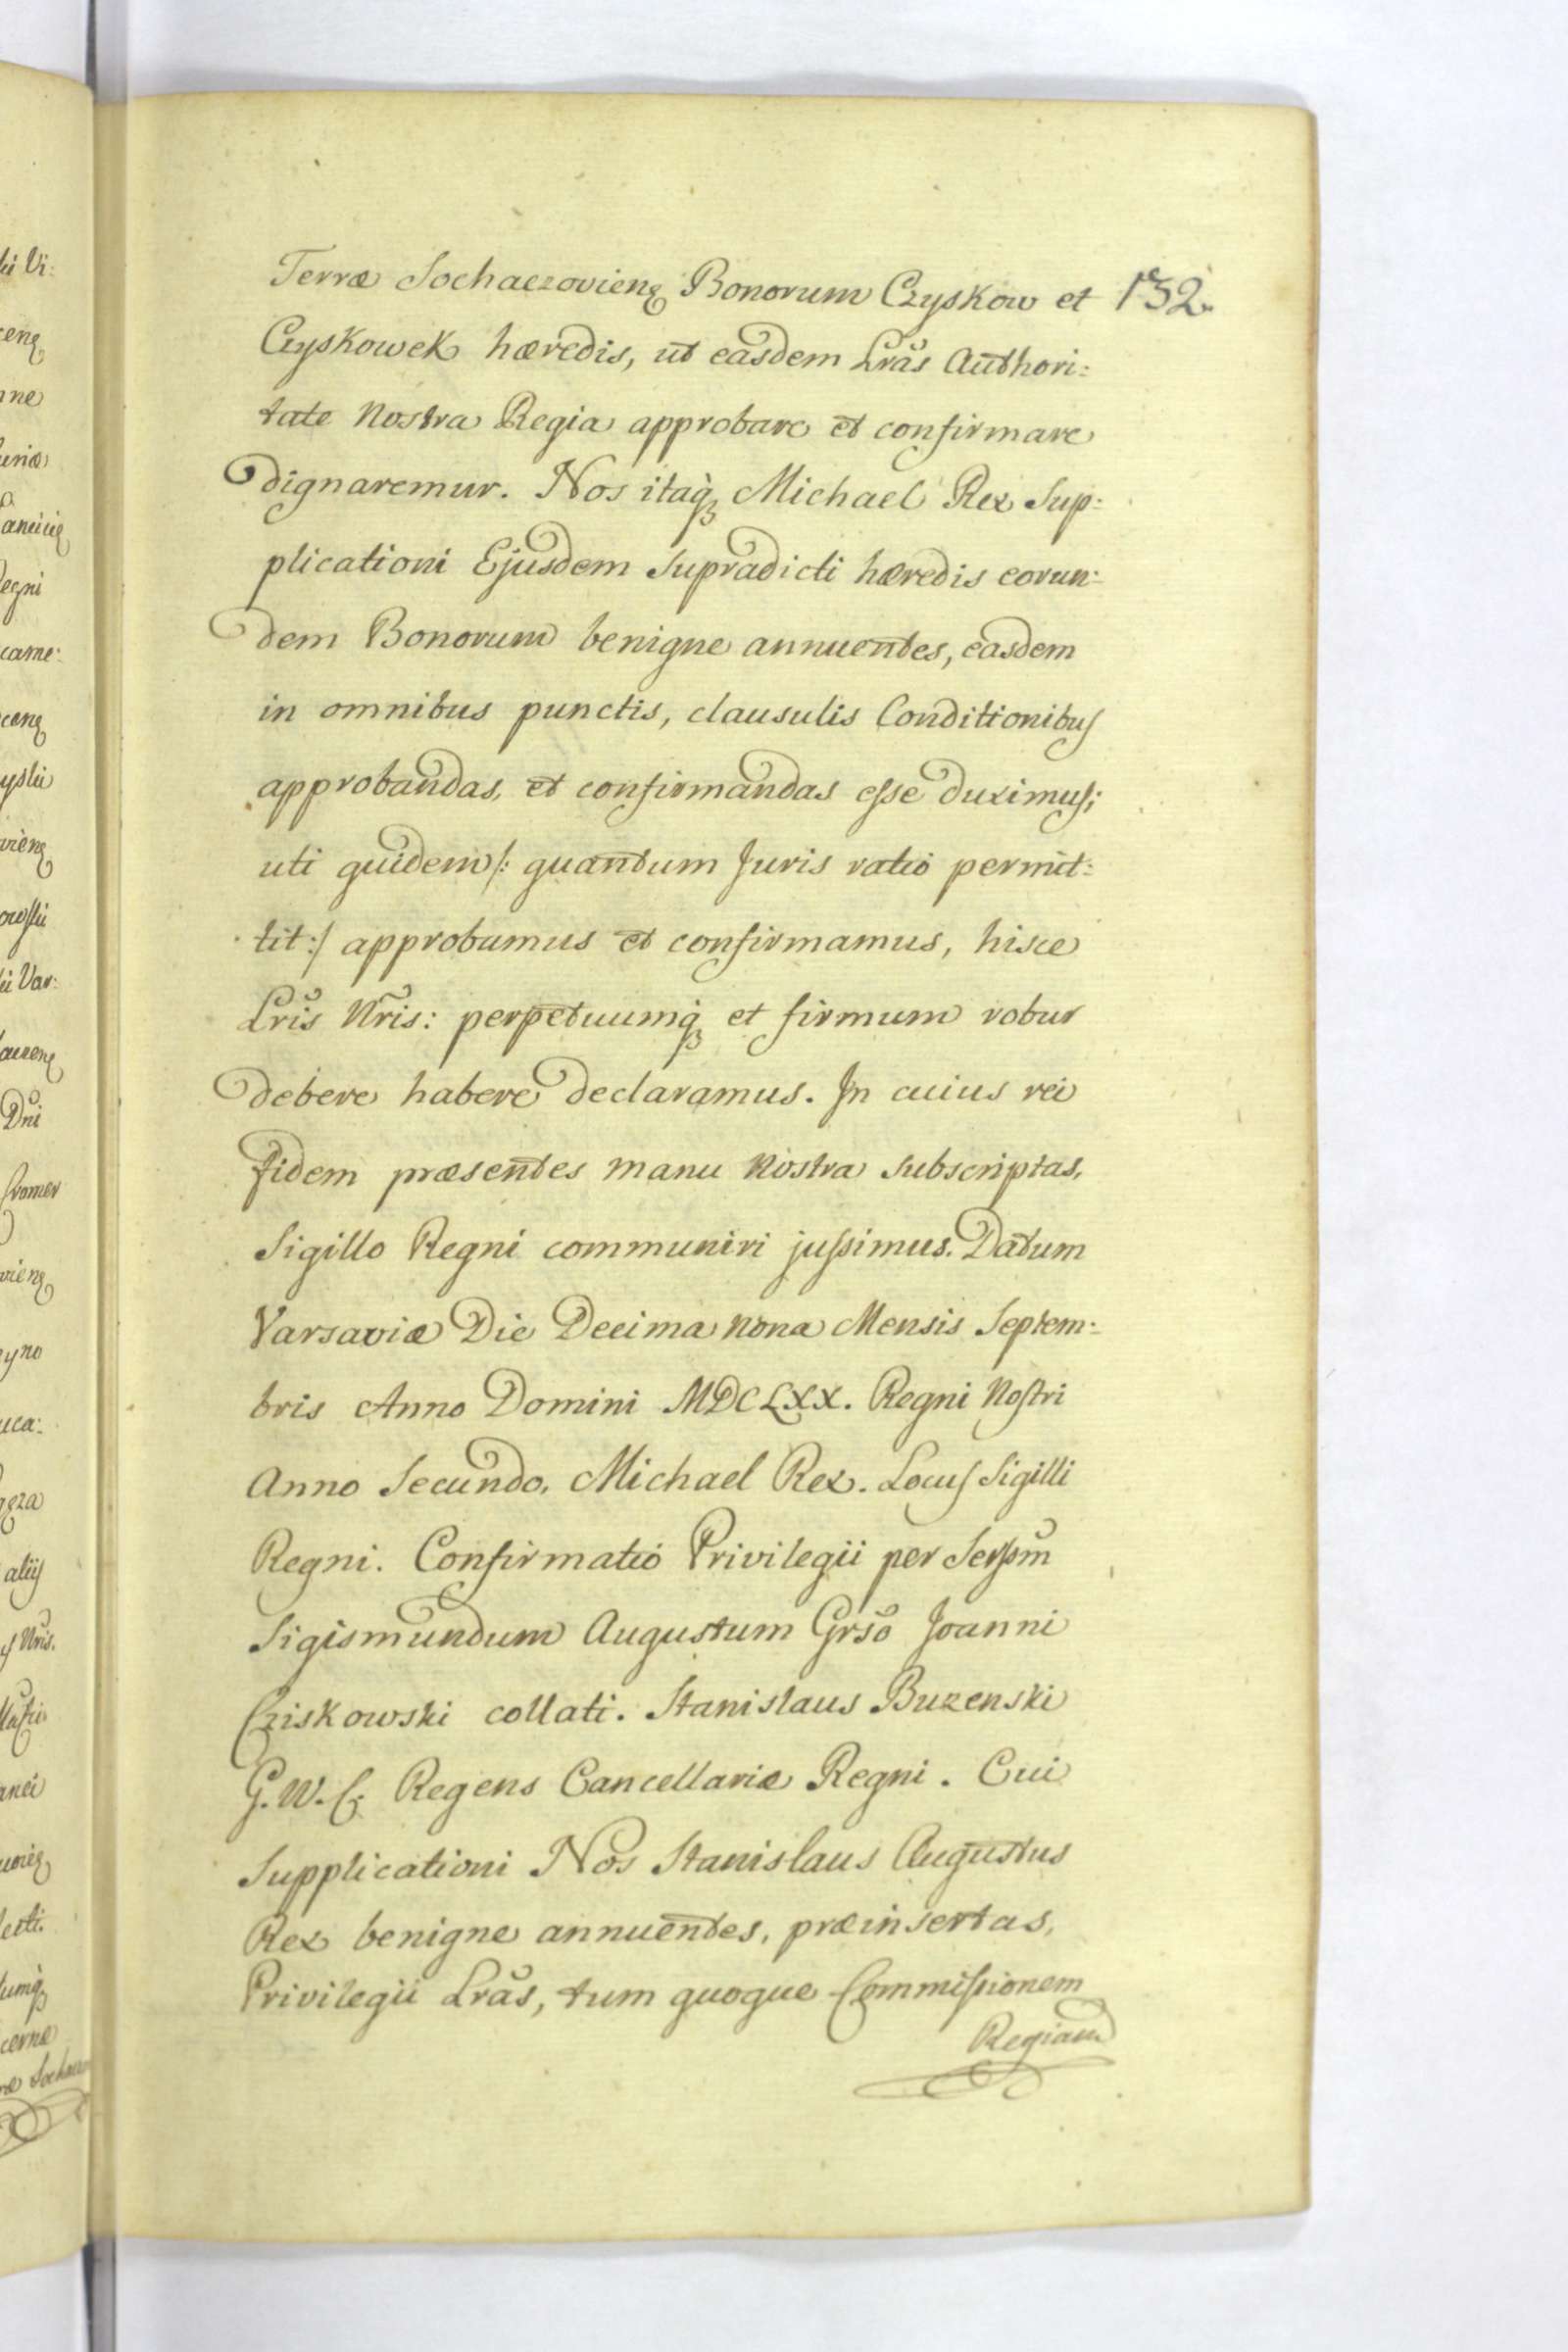 Terræ Sochaczovienꝫ Bonorum Czyskow et 152.
Czyskowek hæredis, ut easdem Lrãs Authori:
tate Nostra Regia approbare et confirmare
dignaremur. Nos itaqꝫ Michael Rex Sup:
plicationi Ejusdem supradicti hæredis eorun:
dem Bonorum benigne annuentes, easdem
in omnibus punctis, clausulis Conditionibus
approbandas, et confirmandas esse duximus;
uti quidem /: quantum Juris ratio permit:
tit :/ approbamus et confirmamus, hisce
Lrĩs Nrĩs: perpetuumqꝫ et firmum robur
debere habere declaramus. In cuius rei
fidem præsentes manu Nostra subscriptas,
Sigillo Regni communiri jussimus. Datum
Varsaviæ Die Decima nona Mensis Septem:
bris Anno Domini MDCLXX. Regni Nostri
Anno Secundo. Michael Rex. Locus Sigilli
Regni. Confirmatio Privilegii per Serssm̃
Sigismundum Augustum Grsõ Joanni
Cziskowski collati. Stanislaus Buzenski
G. W. C. Regens Cancellariæ Regni. Cui
Supplicationi Nos Stanislaus Augustus
Rex benigne annuentes, præinsertas,
Privilegii Lrãs, tum quoque Commissionem
Regiam